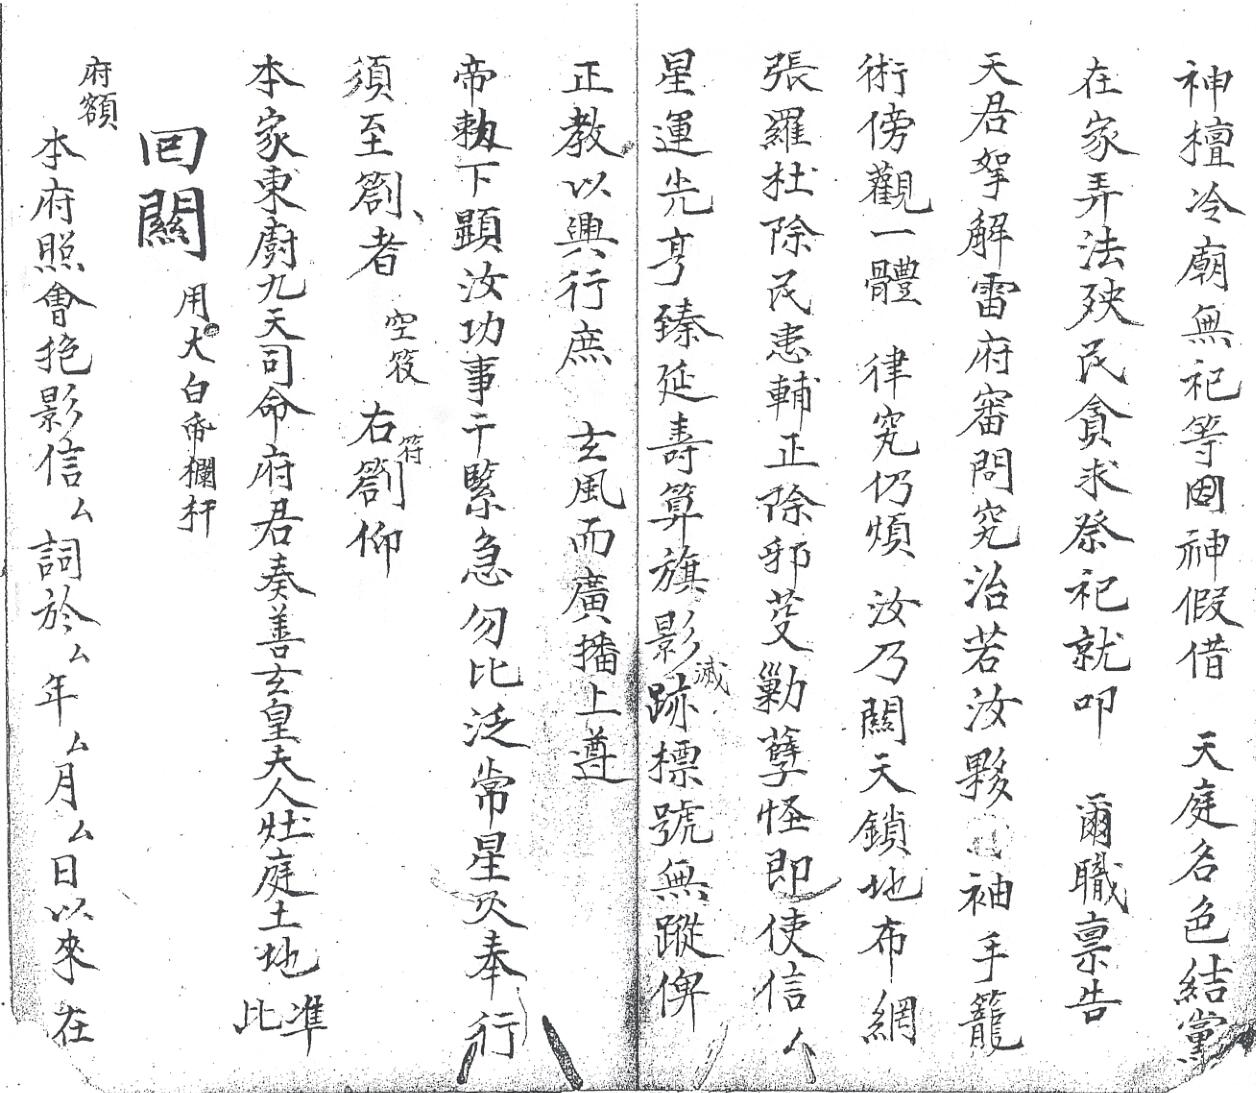 神檀冷廟無祀等因神假借　天庭名色結黨
在家弄法殃民貪求祭祀就叩　爾職禀告
天君拏解雷府審問究治若汝夥袖手籠
術傍觀一體　律究仍煩　汝乃關天鎖地布網
張羅杜除民患輔正除邪芟勦孽怪即使信厶
星運光亨臻延壽算旗影滅跡標號無蹤俾
正教以興行庶　玄風而廣播上遵
帝勑下顯汝功事干緊急勿比泛常星火奉行
須至劄者　空筊　右劄符仰
本家東廚九天司命府君奏善玄皇夫人灶庭土地　準此
回關　用大白帋欄杆
府額
本府照會抱影信厶詞於厶年厶月厶日以來在